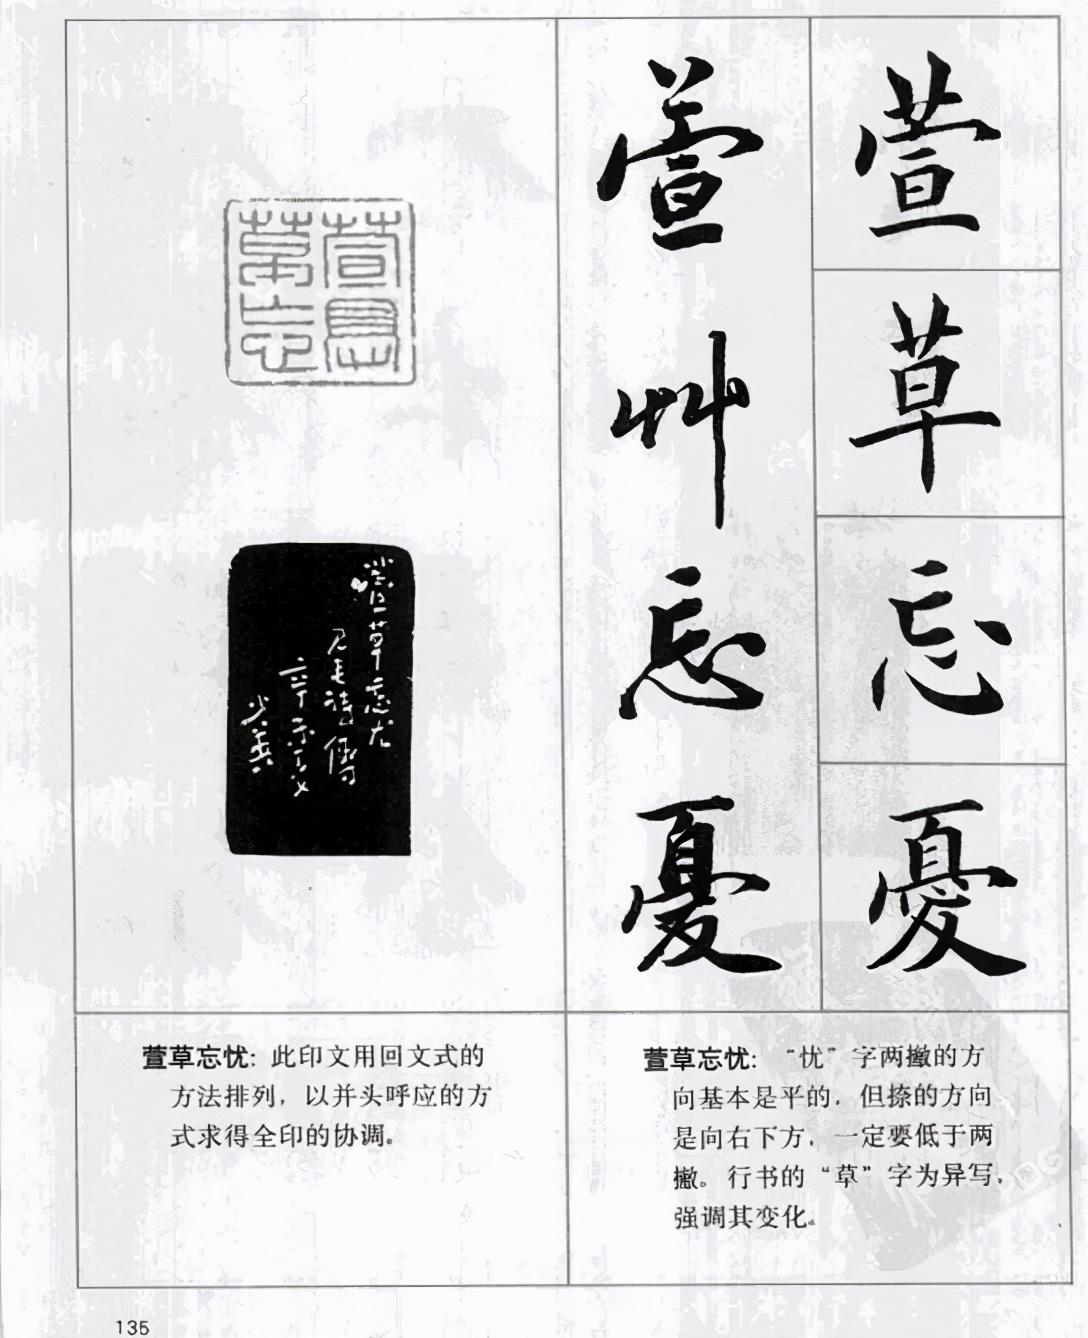 萱草忘憂
萱艸忘憂
萱草忘憂
草忘
見毛詩傳
萱草忘忧：此印文用回文式的
方法排列，以并头呼应的方
式求得全印的协调。
萱草忘忧：“忧”字两撇的方
向基本是平的，但捺的方向
是向右下方，一定要低于两
撇。行书的“草”字为异写，
强调其变化。
135